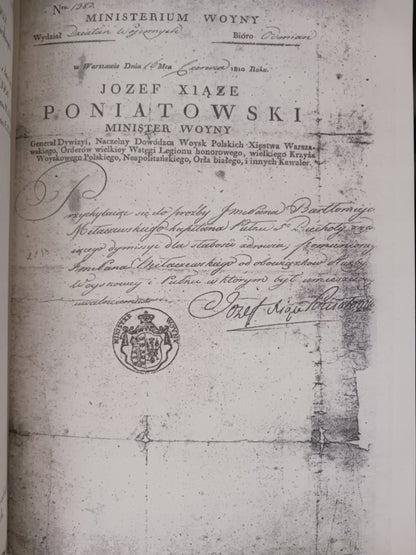 Nro 1282.
MINISTERIUM WOYNY
Wydział Działań Wojennych Bióro Odmian
w Warszawie Dnia Mca Czerwca 1810 Roku.
JOZEF XIĄZE
PONIATOWSKI
MINISTER WOYNY
Generał Dywizyi, Naczelny Dowódzca Woysk Polskich Xięstwa Warsza-
wskiego, Orderów wielkiey Wstęgi Legionu honorowego, wielkiego Krzyża
Woyskowego Polskiego, Neapolitańskiego, Orła białego, i innych Kawaler.
Przychylając się do prośby JmcPana Bartłomieja
Kapitana Pułku 5o Piechoty
dymissyi dla słabości zdrowia,
od obowiązków Służby
Woyskowey i Pułku w którym był umieszczony
Jozef Xiąże Poniatowski
MINISTER WOYNY